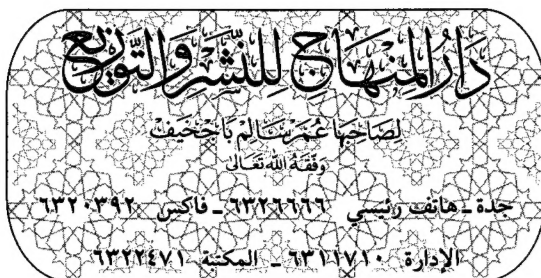 دَارُ المِنْهَاجِ لِلنَّشْرِ وَالتَّوْزِيعِ
لِصَاحِبِهَا عُمَر سَالِم بَاجُخَيْف
وَفَّقَهُ اللهُ تَعَالَى
جدة - هاتف رئيسي ٦٣٢٦٦٦٦ - فاكس ٦٣٢٠٣٩٢
الإدارة ٦٣١١٧١٠ - المكتبة ٦٣٢٢٤٧١